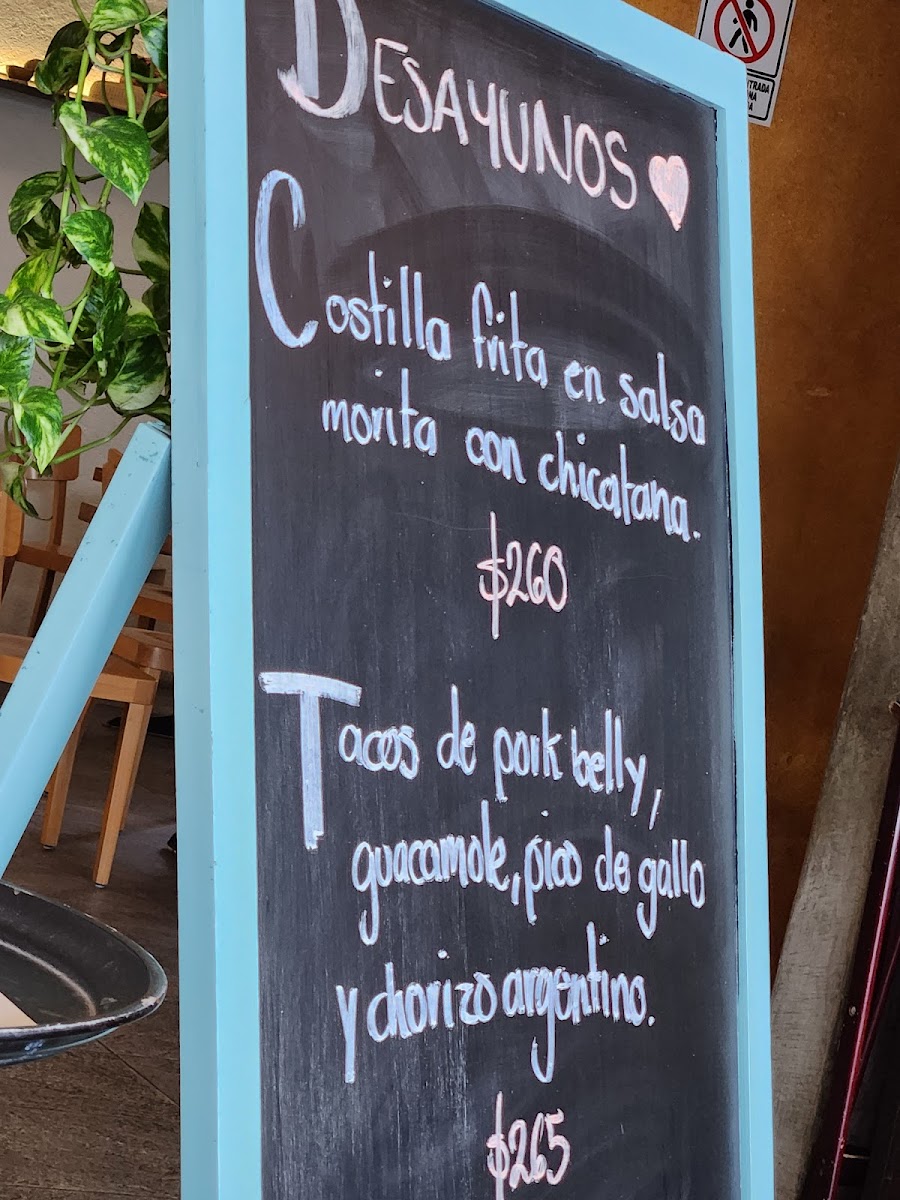 DESAYUNOS
Costilla frita en salsa
morita con chicatana.
$260
Tacos de pork belly,
guacamole, pico de gallo
y chorizo argentino.
$265